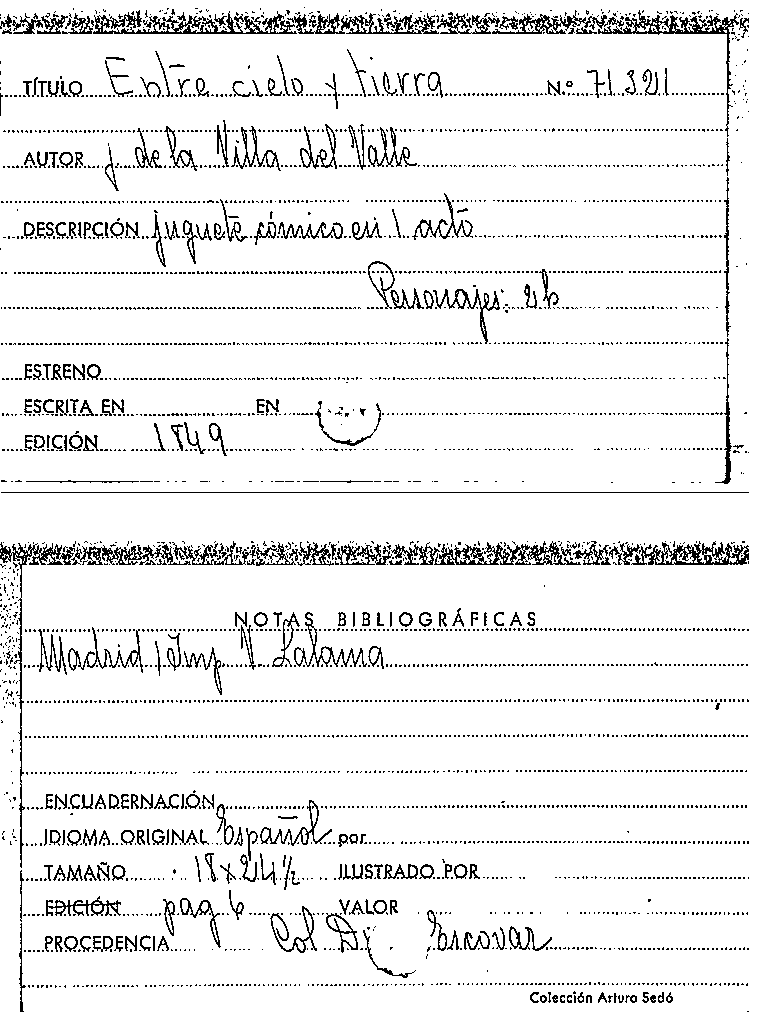 TÍTULO Entre cielo y tierra N.º 71321
AUTOR J de la Villa del Valle
DESCRIPCIÓN juguete cómico en 1 acto
Personajes:
ESTRENO
ESCRITA EN EN
EDICIÓN 1849
NOTAS BIBLIOGRÁFICAS
Madrid / Imp V. Lalama
ENCUADERNACIÓN
IDIOMA ORIGINAL Español por
TAMAÑO 18 x 24 ½ ILUSTRADO POR
EDICIÓN pag 6 VALOR
PROCEDENCIA Col Dr. Escovar
Colección Arturo Sedó